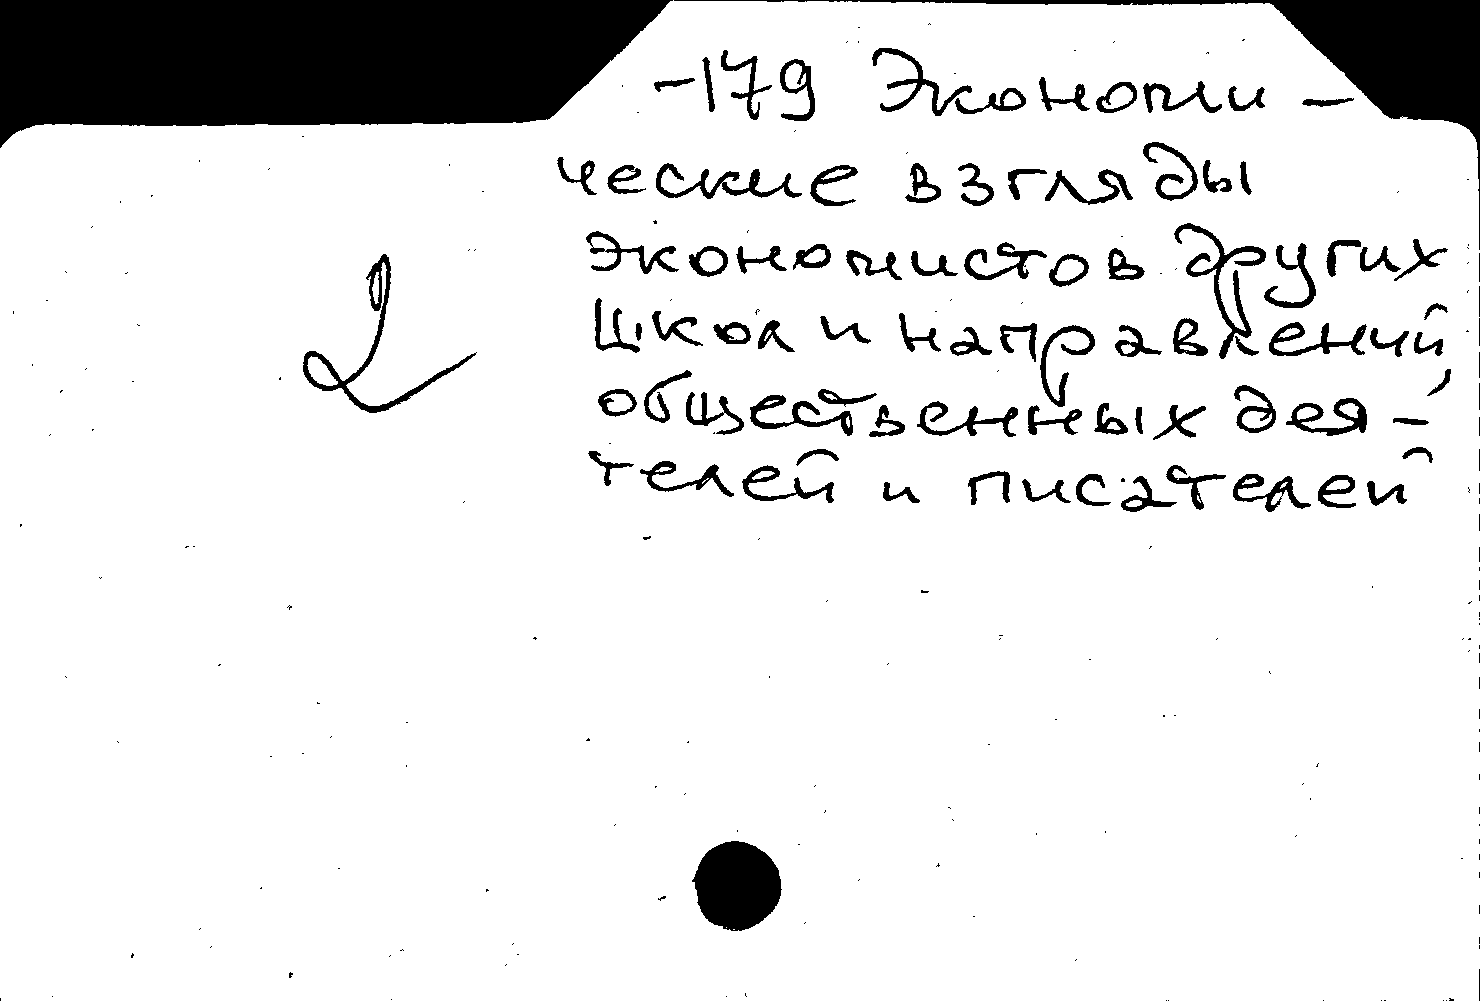 -179 Экономи-
ческие взгляды
экономистов других
школ и направлений,
общественных дея-
телей и писателей